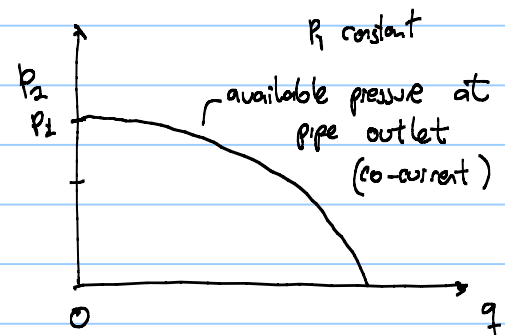 P1 constant
p2
P1
available pressure at
pipe outlet
(co-current)
0
q